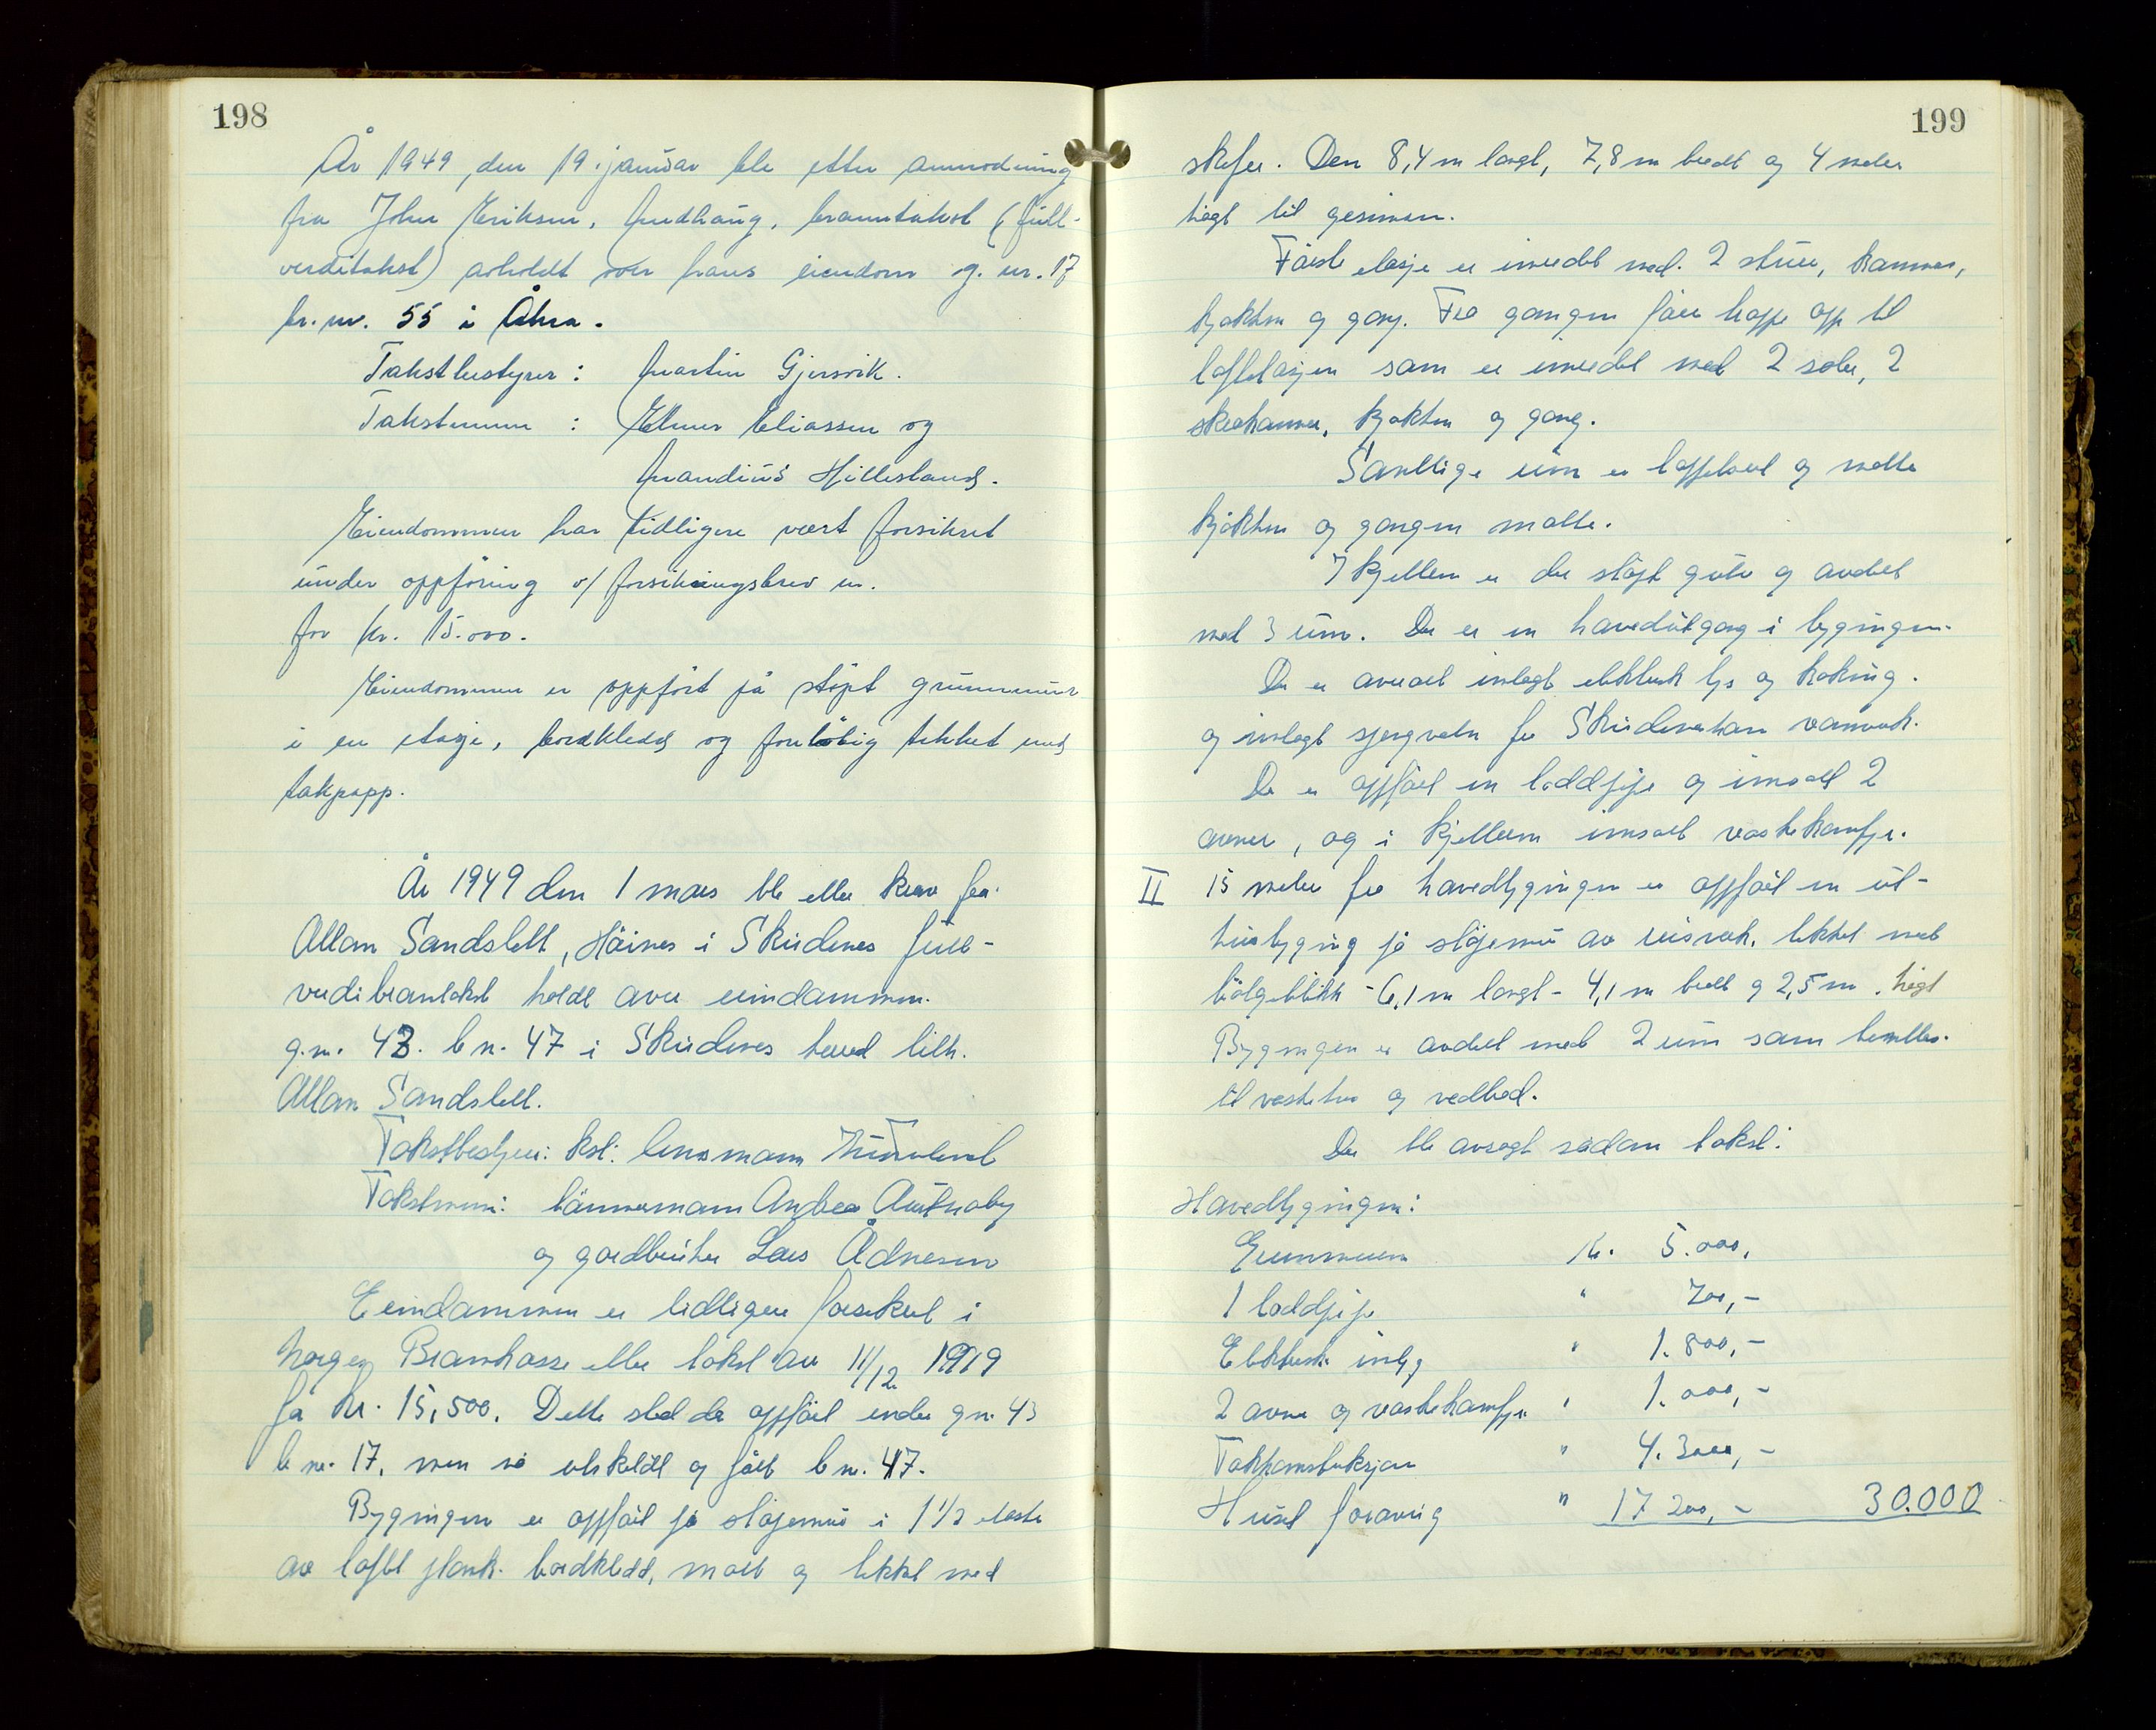 198
År 1949, den 19. januar ble etter anmodning
fra John Eriksen, Medhaug, branntakst (full-
verditakst) avholdt over hans eiendom g. nr. 17
br. nr. 55 i Åkra.
Takstbestyrer: Martin Gjersvik.
Takstmenn : Elmer Eliassen og
Mandius Hillesland.
Eiendommen har tidligere vært forsikret
under oppföring v/ forsikringsbrev nr.
for kr. 15.000.
Eiendommen er oppfört på stöpt grunnmur
i en etasje, bordkledd og forelöbig tekket med
takpapp.
År 1949 den 1 mars ble etter krav fra
Allan Sandslett, Höines i Skudenes full-
verdibranntakst holdt over eiendommen.
g.nr. 43. b nr. 47 i Skudenes herred tilh.
Allan Sandslett.
Takstbestyrer: kst. lensmann
Takstmenn: tömmermann Andreas Austnaby
og gardbruker Lars Ådnesen
Eiendommen er tidligere forsikret i
Norges Brannkasse etter takst av 11/12 1919
for kr. 15,500. Dette sted da oppfört under gnr. 43
b nr. 17, men nå utskeldt og fått b nr. 47.
Bygningen er oppfört på stöpemur i 1 1/2 etasje
av loftet plank. bordkledd, malt og tekket med
199
skifer. Den 8,4 m langt, 7,8 m bredt og 4 meter
högt til gesimsen.
Förste etasje er innredet med. 2 stuer, kammer,
kjökken og gang. Fra gangen förer trapp opp til
loftetasjen som er innredet med 2 saler, 2
skråkammer, kjökken og gang.
Samtlige rum er tappetsert og malte
kjökken og gangen malte.
I kjelleren er der stöpt gulv og avdelt
med 3 rum. Der er en hovedutgang i bygningen.
Der er overalt innlagt elektrisk lys og koking.
og innlagt springvatn fra Skudeneshavn vannverk.
Der er oppfört en loddpipe og innsatt 2
ovner, og i kjelleren innsatt vaskekomfyr.
II 15 meter fra hovedbygningen er oppfört en ut-
husbygning på stöpemur av reisverk, tekket med
bölgeblikk - 6,1 m langt - 4,1 m bredt og 2,5 m. högt
Bygningen er avdelt med 2 rum som benyttes.
til vaskehus og vedbod.
Der ble avsagt sådan takst:
Hovedbygningen:
Grunnmuren kr. 5.000,
1 loddpipe " 700,-
Elektrisk innlg " 1.800,-
2 ovner og vaskekomfyr " 1.000,-
Takkonstruksjon " 4.3000,-
Huset forövrig " 17 200,- 30.000